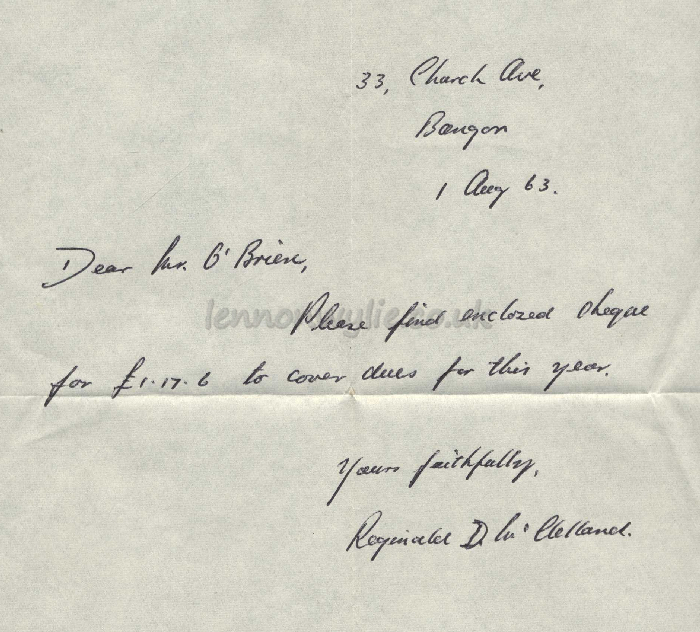 33, Church Ave,
Bangor
1 Aug 63.
Dear Mr. O'Brien,
Please find enclosed cheque
lennonwylie.co.uk
for £1-17-6 to cover dues for this year.
Yours faithfully,
Reginald D. Mc Clelland.